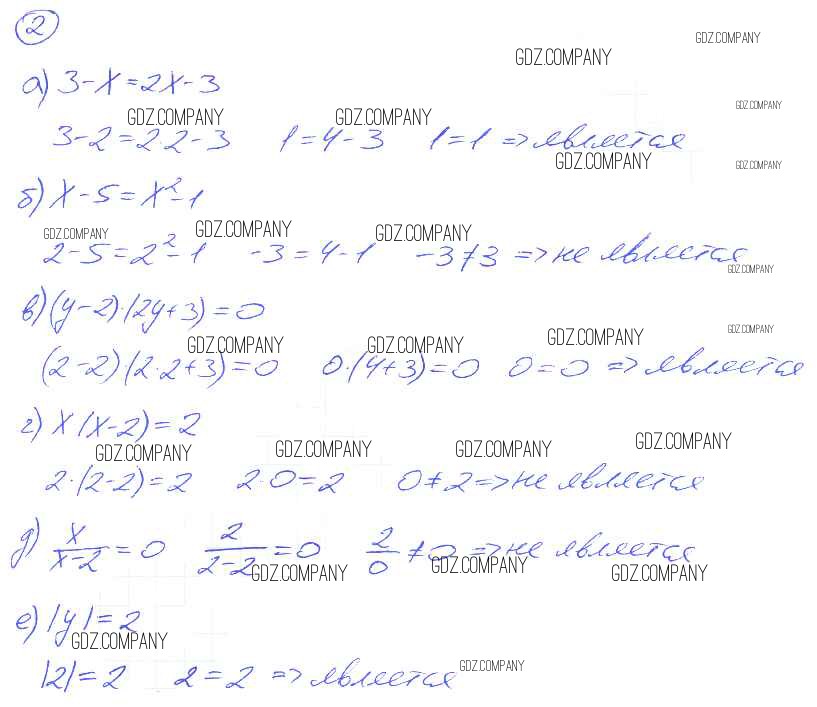 2
GDZ.COMPANY
GDZ.COMPANY
а) 3-x=2x-3
GDZ.COMPANY GDZ.COMPANY GDZ.COMPANY
3-2=2·2-3 1=4-3 1=1 => является
GDZ.COMPANY GDZ.COMPANY
б) x-5=x²-1
GDZ.COMPANY GDZ.COMPANY GDZ.COMPANY
2-5=2²-1 -3=4-1 -3≠3 => не является
GDZ.COMPANY
в) (y-2)·(2y+3)=0
GDZ.COMPANY GDZ.COMPANY GDZ.COMPANY GDZ.COMPANY
(2-2)(2·2+3)=0 0·(4+3)=0 0=0 => является
г) x(x-2)=2
GDZ.COMPANY GDZ.COMPANY GDZ.COMPANY GDZ.COMPANY
2·(2-2)=2 2·0=2 0≠2 => не является
д) x/(x-2)=0 2/(2-2)=0 2/0≠0 => не является
GDZ.COMPANY GDZ.COMPANY GDZ.COMPANY
е) |y|=2
GDZ.COMPANY
|2|=2 2=2 => является
GDZ.COMPANY